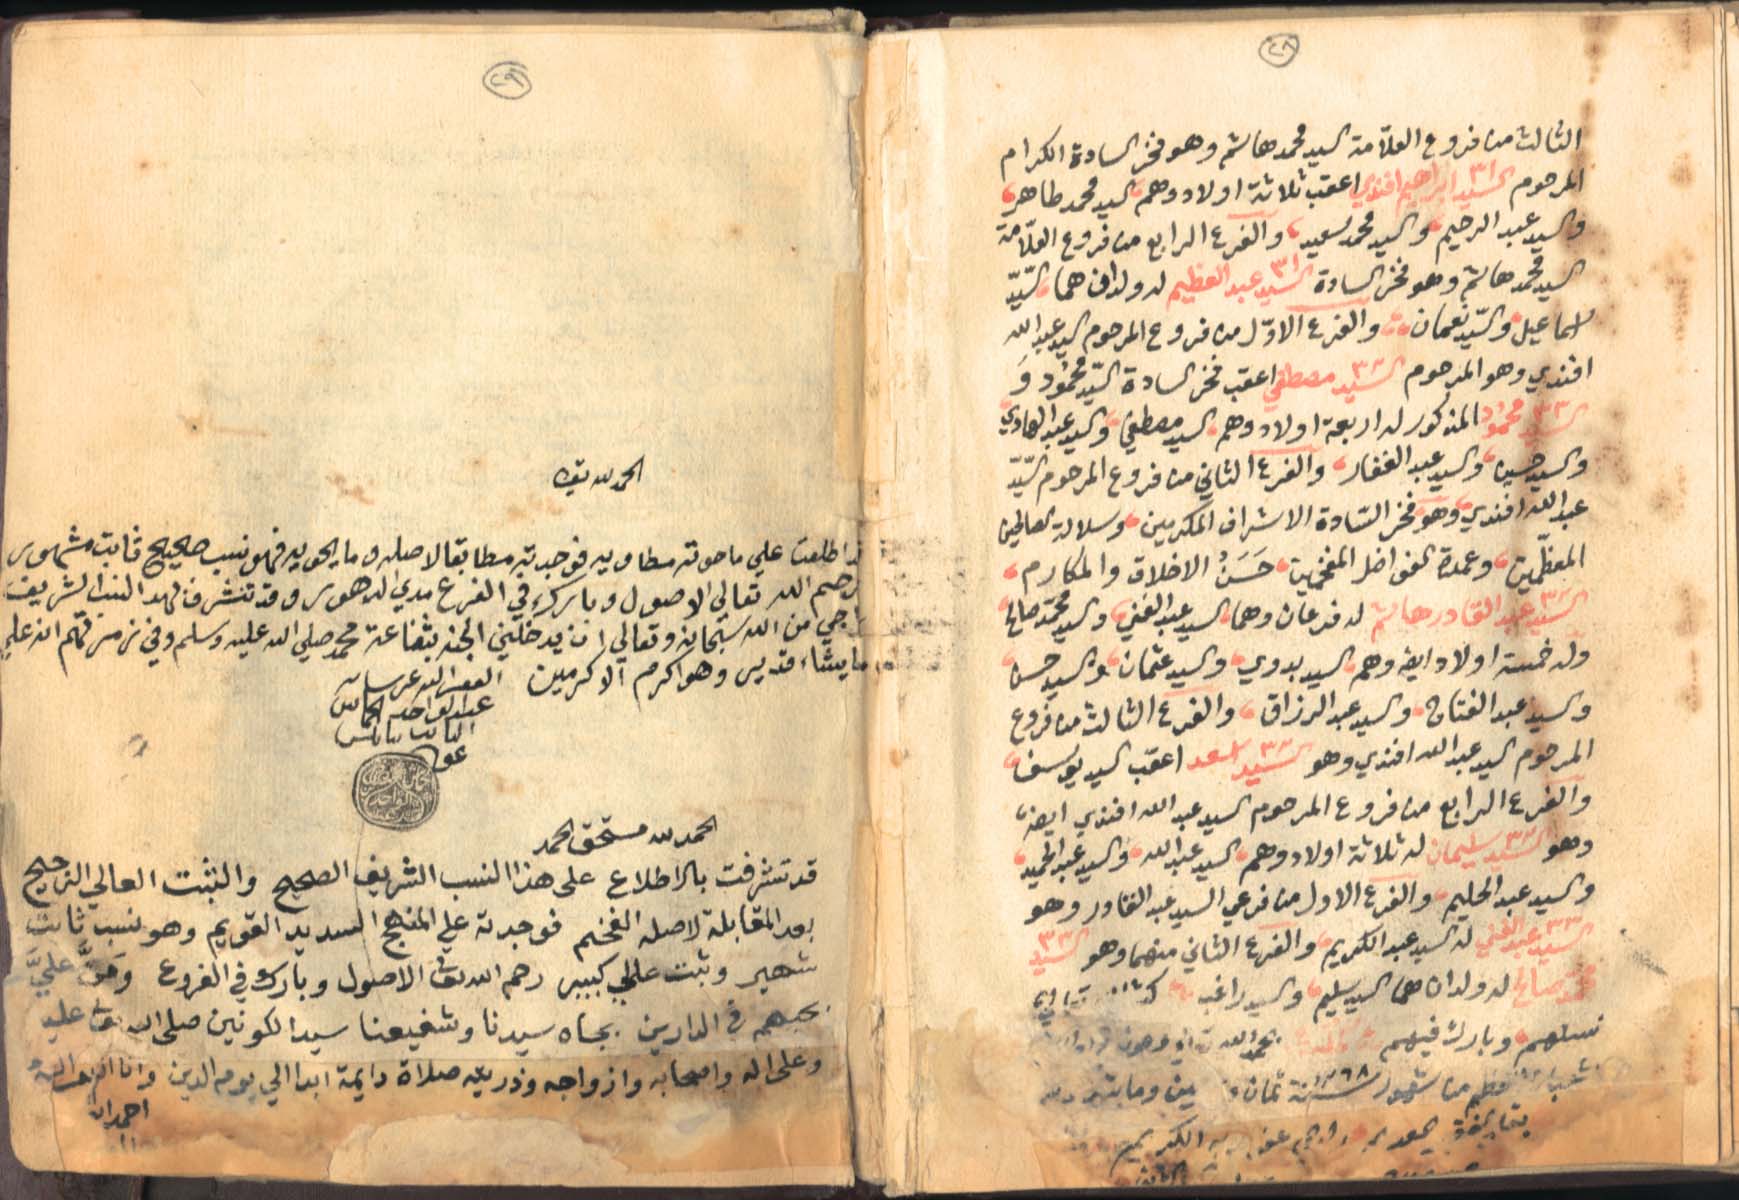 ٢٨
الثالث من فروع العلّامة السيد محمد هاشم وهو فخر السادة الكرام
المرحوم السيد ابراهيم افندي ٣١ اعقب ثلاثة اولاد وهم السيد محمد طاهر
والسيد عبد الرحيم والسيد محمد سعيد والفرع الرابع من فروع العلّامة
السيد محمد هاشم وهو فخر السادة السيد عبد العظيم ٣١ له ولدان هما السّيّد
اسماعيل والسّيّد نعمان والفرع الاوّل من فروع المرحوم السيد عبد الله
افندي وهو المرحوم السيد مصطفى ٣٢ اعقب فخر السادة السّيّد محمُود وَ
السيد محمُود ٣٣ المذكور له اربعة اولاد وهم السيد مصطفى والسيد عبد الهادي
والسيد حسين والسيد عبد الغفار والفرع الثاني من فروع المرحوم السّيّد
عبد الله افندي وهو فخر السّادة الاشراف المكرمين وسلالة الصالحين
المعظّمين وعمدة الفواضل المفخمين حَسَنُ الاخلاق والمكارم
السيد عبد القادر هاشم ٣٢ له فرعان وهما السيد عبد الغني والسيد محمّد صالح
وله خمسة اولاد ايضا وهم السيد بدوي والسيد عثمان والسيد حسن
والسيد عبد الفتاح والسيد عبد الرزاق والفرع الثالث من فروع
المرحوم السيد عبد الله افندي وهو السيد اسعد ٣٢ اعقب السيد يوسف
والفرع الرابع من فروع المرحوم السيد عبد الله افندي ايضا
وهو السيد سليمان ٣٢ له ثلاثة اولاد وهم السيد عبد الله والسيد عبد الحميد
والسيد عبد الحليم والفرع الاول من فرعي السيد عبد القادر وهو
السيد عبد الغني ٣٣ له السيد عبد الكريم والفرع الثاني منهما وهو السيد ٣٣
محمّد صالح له ولدان هما السيد سليم والسيد راغب
نسلهم وبارك فيهم بحمد الله
من شهور سنة ١٢٦٨ ثمان
٢٩
الحمد لله
قد اطلعت علي ما حوته مطاويه فوجدته مطابقا لاصله وما يحويه فهو نسب صحيح ثابت مشهور
رحم الله تعالي الاصول وبارك في الفرع مدي الدهور وقد تشرف بهذا النسب الشريف
راجي من الله سبحانه وتعالي ان يدخلني الجنة بشفاعة محمد صلي الله عليه وسلم وفي زمرتهم انه علي
ما يشاء قدير وهو اكرم الاكرمين الفقير اليه عز شانه
عبد الواحد الخماش
النائب بنابلس
عفي
الحمد لله مستحق الحمد
قد تشرفت بالاطلاع على هذا النسب الشريف الصحيح والثبت العالي الرجيح
بعد المقابلة لاصله الفخيم فوجدته علي المنهج السديد القويم وهو نسب ثابت
شهير وثبت عالي كبير رحم الله تعالى الاصول وبارك في الفروع
بحبهم في الدارين بجاه سيدنا وشفيعنا سيد الكونين صلى الله تعالى عليه
وعلى اله واصحابه وازواجه وذريته صلاة دايمة ابدا الي يوم الدين وانا
احمد